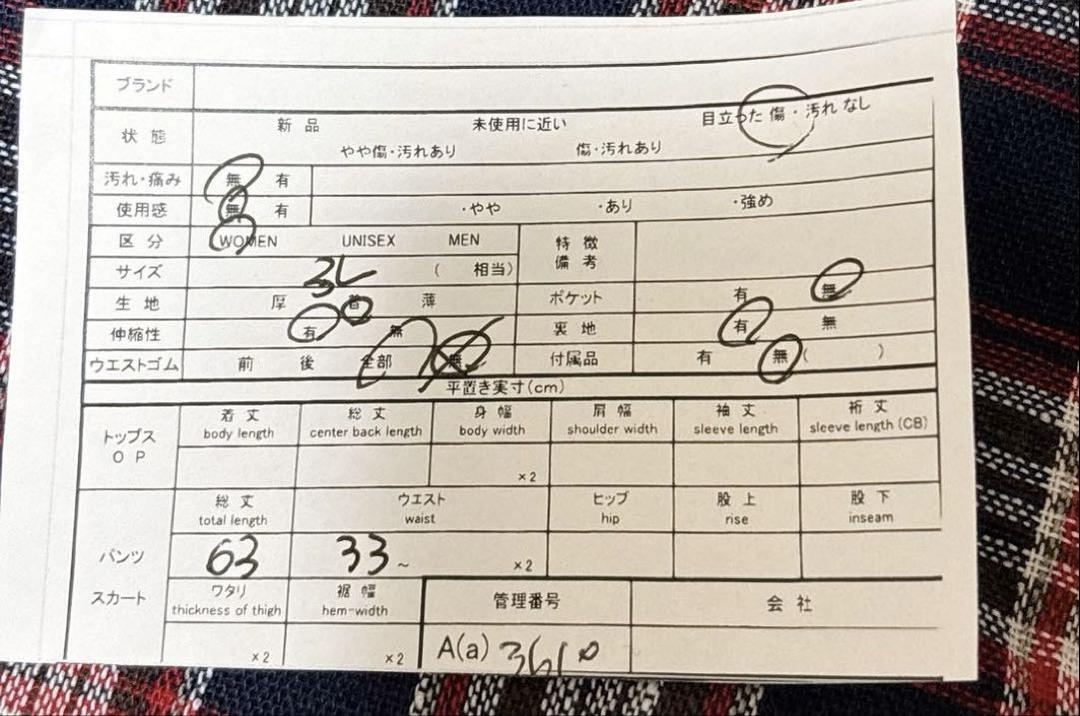 ブランド
状態 新品 未使用に近い 目立った傷・汚れなし
やや傷・汚れあり 傷・汚れあり
汚れ・痛み 無 有
使用感 無 有 ・やや ・あり ・強め
区分 WOMEN UNISEX MEN 特徴 備考
サイズ 3L ( 相当)
生地 厚 普 薄 ポケット 有 無
伸縮性 有 無 裏地 有 無
ウエストゴム 前 後 全部 無 付属品 有 無 ( )
平置き実寸(cm)
トップス OP 着丈 総丈 身幅 肩幅 袖丈 裄丈
body length center back length body width shoulder width sleeve length sleeve length (CB)
×2
総丈 ウエスト ヒップ 股上 股下
total length waist hip rise inseam
パンツ 63 33~ ×2
スカート ワタリ 裾幅 管理番号 会社
thickness of thigh hem-width
×2 ×2 A(a)